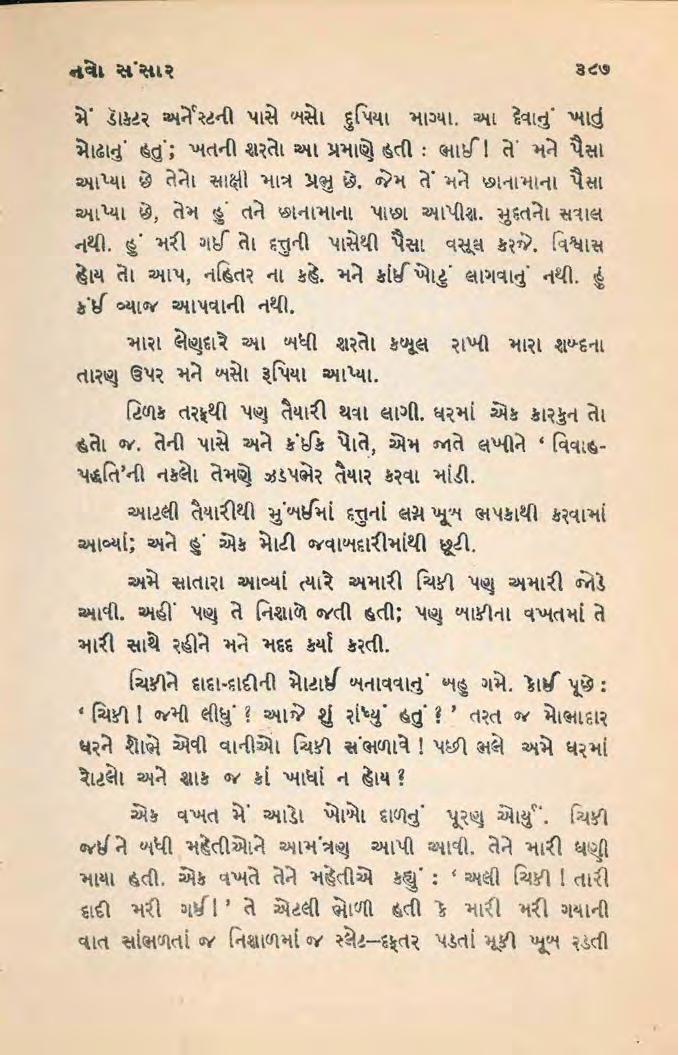 નવો સંસાર ૩૮૭
મેં ડૉક્ટર અર્નેસ્ટની પાસે બસો રૂપિયા માગ્યા. આ દેવાનું ખાતું
મોઢાનું હતું; ખતની શરતો આ પ્રમાણે હતી : ભાઈ ! તેં મને પૈસા
આપ્યા છે તેનો સાક્ષી માત્ર પ્રભુ છે. જેમ તેં મને છાનામાના પૈસા
આપ્યા છે, તેમ હું તને છાનામાના પાછા આપીશ. મુદ્દતનો સવાલ
નથી. હું મરી ગઈ તો દત્તુની પાસેથી પૈસા વસૂલ કરજે. વિશ્વાસ
હોય તો આપ, નહિતર ના કહે. મને કાંઈ ખોટું લાગવાનું નથી. હું
કંઈ વ્યાજ આપવાની નથી.
મારા લેણદારે આ બધી શરતો કબૂલ રાખી મારા શબ્દના
તારણ ઉપર મને બસો રૂપિયા આપ્યા.
ટિળક તરફથી પણ તૈયારી થવા લાગી. ઘરમાં એક કારકુન તો
હતો જ. તેની પાસે અને કંઈક પોતે, એમ જાતે લખીને ‘ વિવાહ-
પદ્ધતિ’ની નકલો તેમણે ઝડપભેર તૈયાર કરવા માંડી.
આટલી તૈયારીથી મુંબઈમાં દત્તુનાં લગ્ન ખૂબ ભપકાથી કરવામાં
આવ્યાં; અને હું એક મોટી જવાબદારીમાંથી છૂટી.
અમે સાતારા આવ્યાં ત્યારે અમારી ચિકી પણ અમારી જોડે
આવી. અહીં પણ તે નિશાળે જતી હતી; પણ બાકીના વખતમાં તે
મારી સાથે રહીને મને મદદ કર્યા કરતી.
ચિકીને દાદા-દાદીની મોટાઈ બનાવવાનું બહુ ગમે. કોઈ પૂછે :
‘ ચિકી ! જમી લીધું ? આજે શું રાંધ્યું હતું ? ’ તરત જ મોભાદાર
ઘરને શોભે એવી વાનીઓ ચિકી સંભળાવે ! પછી ભલે અમે ઘરમાં
રોટલો અને શાક જ કાં ખાધાં ન હોય ?
એક વખત મેં આડો ખોબો દાળનું પૂરણ ઓર્યું. ચિકી
જઈને બધી મહેતીઓને આમંત્રણ આપી આવી. તેને મારી ઘણી
માયા હતી. એક વખતે તેને મહેતીએ કહ્યું : ‘ અલી ચિકી ! તારી
દાદી મરી ગઈ ! ’ તે એટલી ભોળી હતી કે મારી મરી ગયાની
વાત સાંભળતાં જ નિશાળમાં જ સ્લેટ–દફતર પડતાં મૂકી ખૂબ રડતી